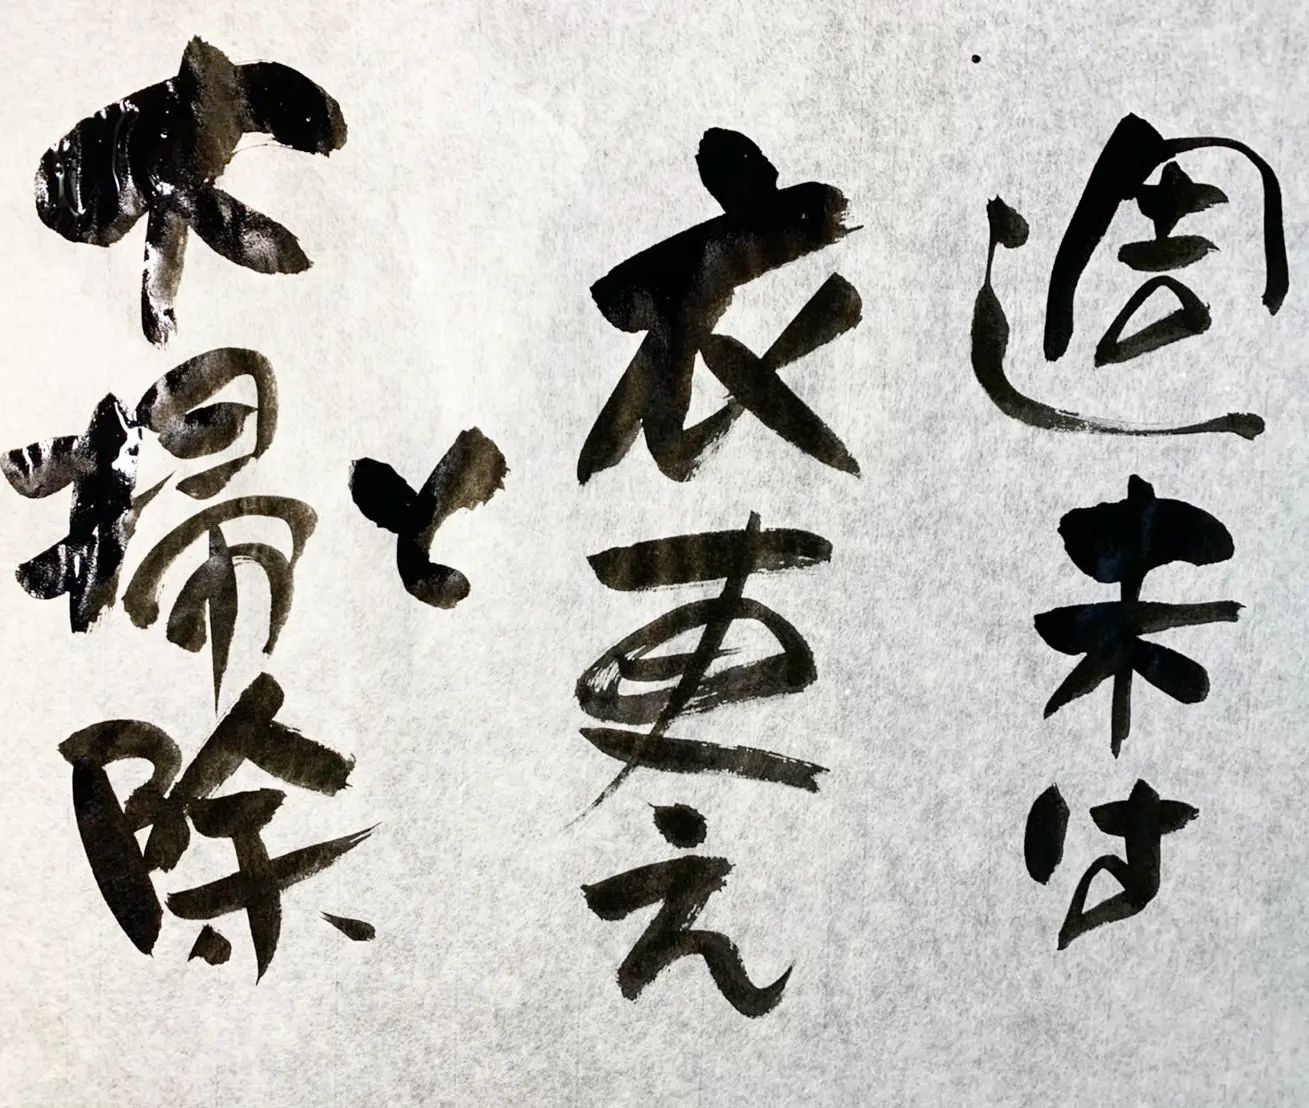 週末は
衣更え
と
大掃除